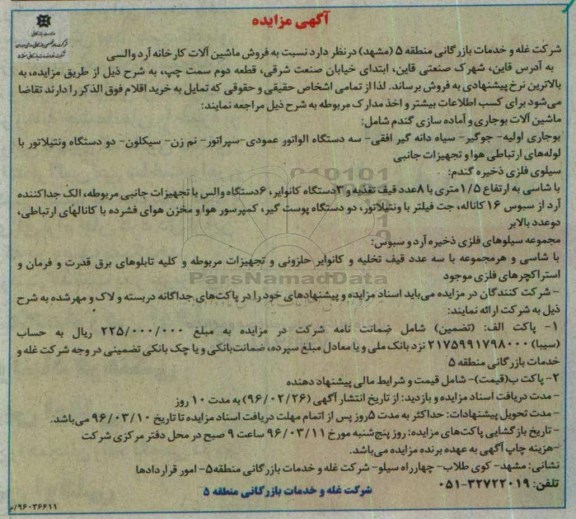 آگهی مزایده
شرکت غله و خدمات بازرگانی منطقه ۵ (مشهد) در نظر دارد نسبت به فروش ماشین آلات کارخانه آرد والسی
به آدرس قاین، شهرک صنعتی قاین، ابتدای خیابان صنعت شرقی، قطعه دوم سمت چپ، به شرح ذیل از طریق مزایده، به
بالاترین نرخ پیشنهادی به فروش برساند. لذا از تمامی اشخاص حقیقی و حقوقی که تمایل به خرید اقلام فوق الذکر را دارند تقاضا
می‌شود برای کسب اطلاعات بیشتر و اخذ مدارک مربوطه به شرح ذیل مراجعه نمایند:
ماشین آلات بوجاری و آماده سازی گندم شامل:
بوجاری اولیه- جوگیر- سیاه دانه گیر افقی- سه دستگاه الواتور عمودی-سپراتور- نم زن- سیکلون- دو دستگاه ونتیلاتور با
لوله‌های ارتباطی هوا و تجهیزات جانبی
سیلوی فلزی ذخیره گندم:
با شاسی به ارتفاع ۱/۵ متری با ۸عدد قیف تغذیه و ۳دستگاه کانوایر، ۶دستگاه والس با تجهیزات جانبی مربوطه، الک جداکننده
آرد از سبوس ۱۶ کاناله، جت فیلتر با ونتیلاتور، دو دستگاه پوست گیر، کمپرسور هوا و مخزن هوای فشرده با کانالهای ارتباطی،
دوعدد بالابر
مجموعه سیلوهای فلزی ذخیره آرد و سبوس:
با شاسی و هرمجموعه با سه عدد قیف تخلیه و کانوایر حلزونی و تجهیزات مربوطه و کلیه تابلوهای برق قدرت و فرمان و
استراکچرهای فلزی موجود
- شرکت کنندگان در مزایده می‌باید اسناد مزایده و پیشنهادهای خود را در پاکت‌های جداگانه دربسته و لاک و مهر شده به شرح
ذیل به شرکت ارائه نمایند:
۱- پاکت الف: (تضمین) شامل ضمانت نامه شرکت در مزایده به مبلغ ۲۲۵/۰۰۰/۰۰۰ ریال به حساب
(سیبا) ۲۱۷۵۹۹۱۷۹۸۰۰۰ نزد بانک ملی و یا معادل مبلغ سپرده، ضمانت‌بانکی و یا چک بانکی تضمینی در وجه شرکت غله و
خدمات بازرگانی منطقه ۵
۲- پاکت ب(قیمت)- شامل قیمت و شرایط مالی پیشنهاد دهنده
- مدت دریافت اسناد مزایده و بازدید: از تاریخ انتشار آگهی (۹۶/۰۲/۲۶) به مدت ۱۰ روز
- مدت تحویل پیشنهادات: حداکثر به مدت ۵روز پس از اتمام مهلت دریافت اسناد مزایده تا تاریخ ۹۶/۰۳/۱۰ می‌باشد.
- تاریخ بازگشایی پاکت‌های مزایده: روز پنج‌شنبه مورخ ۹۶/۰۳/۱۱ ساعت ۹ صبح در محل دفتر مرکزی شرکت
-هزینه چاپ آگهی به عهده برنده مزایده می‌باشد.
نشانی: مشهد- کوی طلاب- چهارراه سیلو- شرکت غله و خدمات بازرگانی منطقه۵- امور قراردادها
تلفن: ۳۲۷۲۲۰۱۹-۰۵۱
شرکت غله و خدمات بازرگانی منطقه ۵
۹۶۰۳۶۶۱۱/م
ParsNamadData